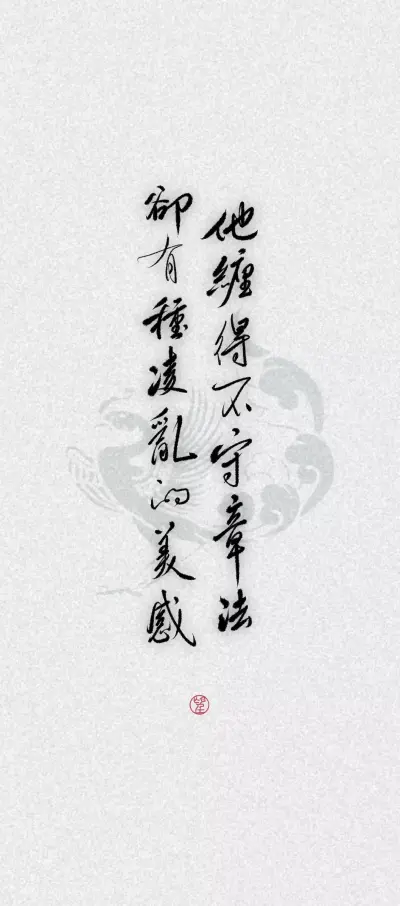 他纏得不守章法
卻有種凌亂的美感